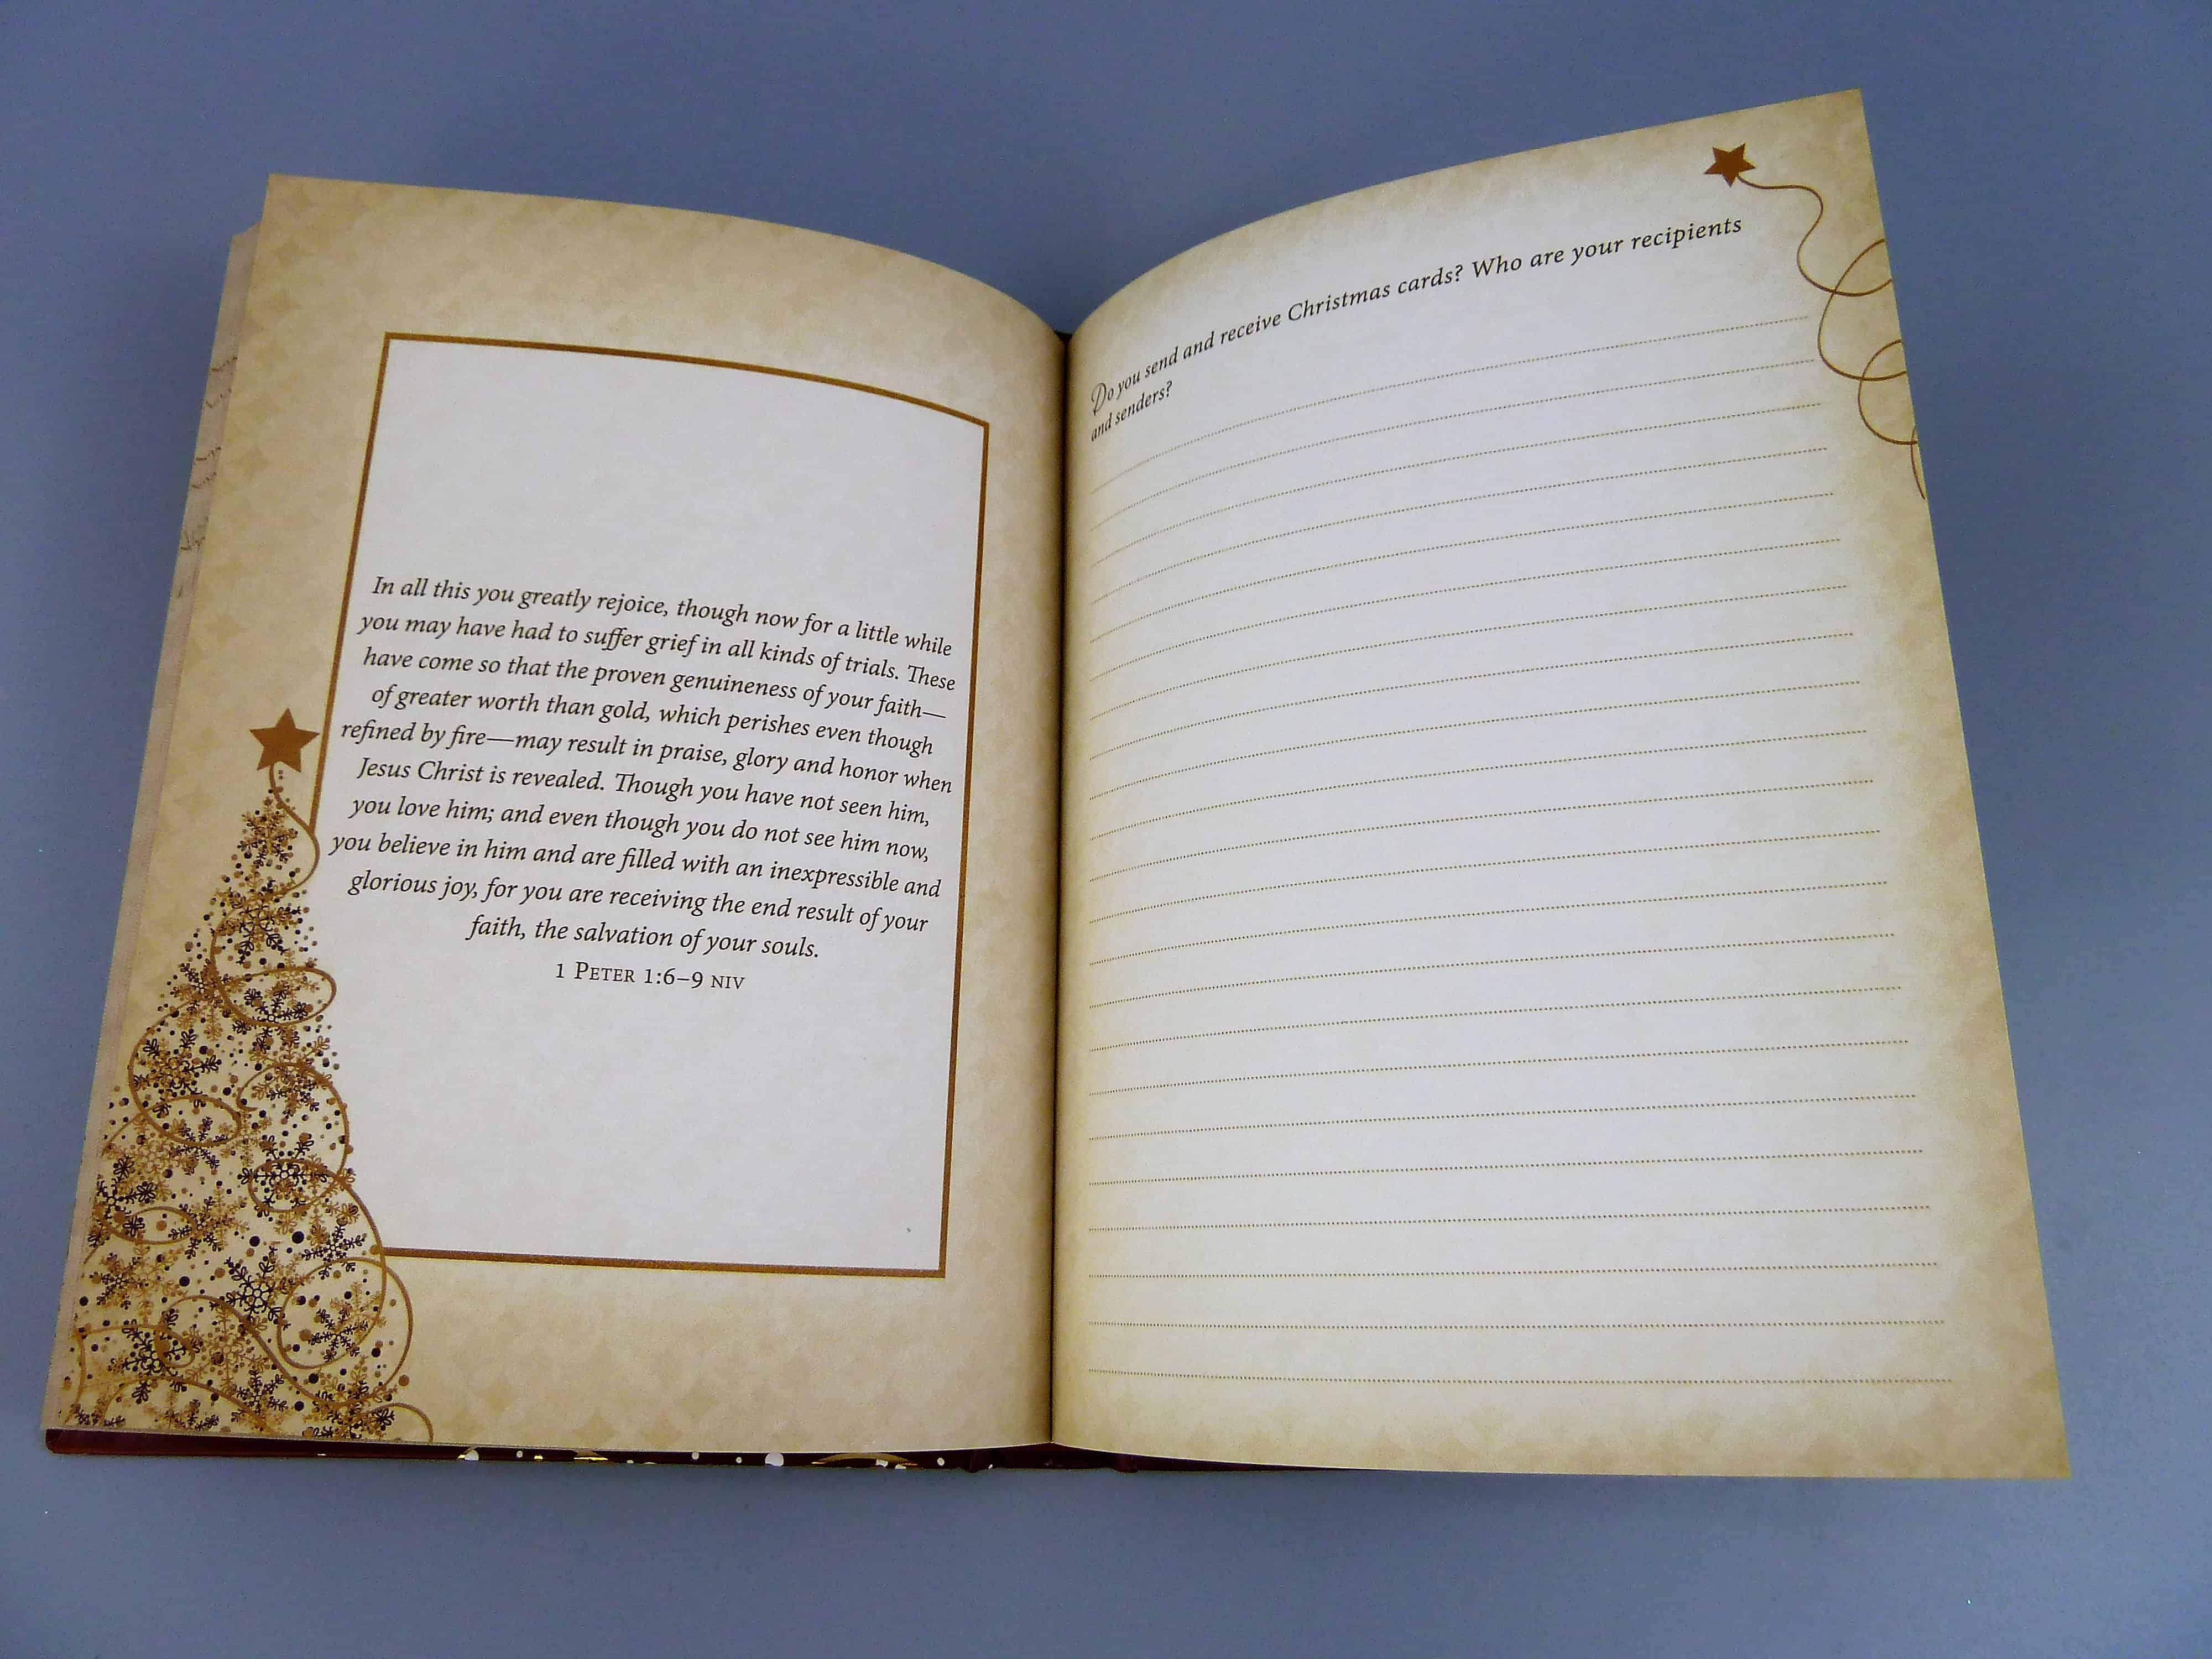 In all this you greatly rejoice, though now for a little while
you may have had to suffer grief in all kinds of trials. These
have come so that the proven genuineness of your faith—
of greater worth than gold, which perishes even though
refined by fire—may result in praise, glory and honor when
Jesus Christ is revealed. Though you have not seen him,
you love him; and even though you do not see him now,
you believe in him and are filled with an inexpressible and
glorious joy, for you are receiving the end result of your
faith, the salvation of your souls.
1 PETER 1:6–9 NIV
Do you send and receive Christmas cards? Who are your recipients
and senders?